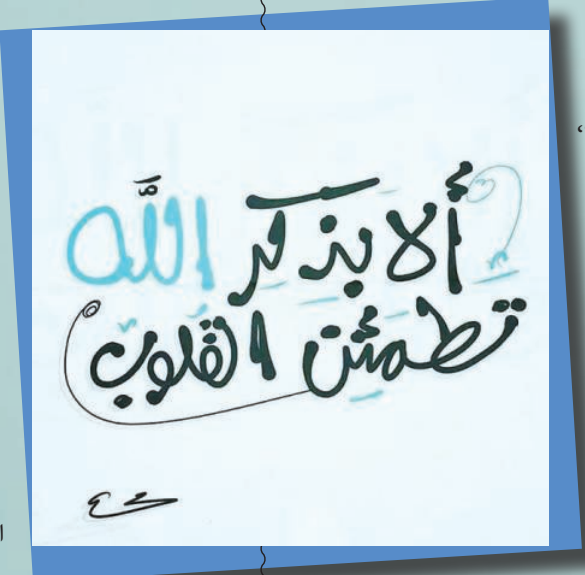 ألا بذكر الله
تطمئن القلوب